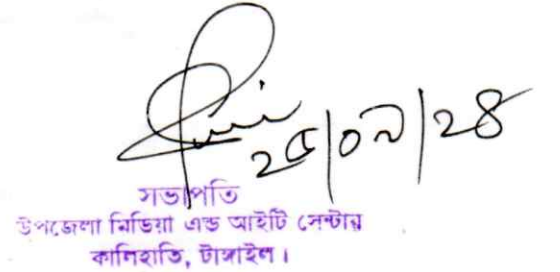 ২৫/০৯/২৪
সভাপতি
উপজেলা মিডিয়া এন্ড আইটি সেন্টার
কালিহাতি, টাঙ্গাইল।